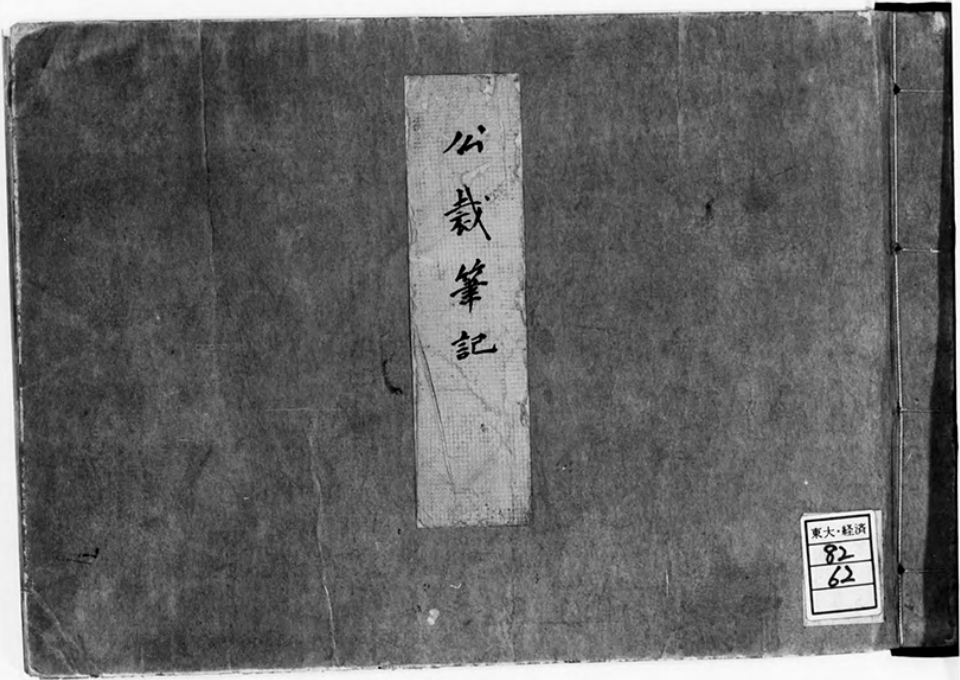 公裁筆記
東大・経済
82
62